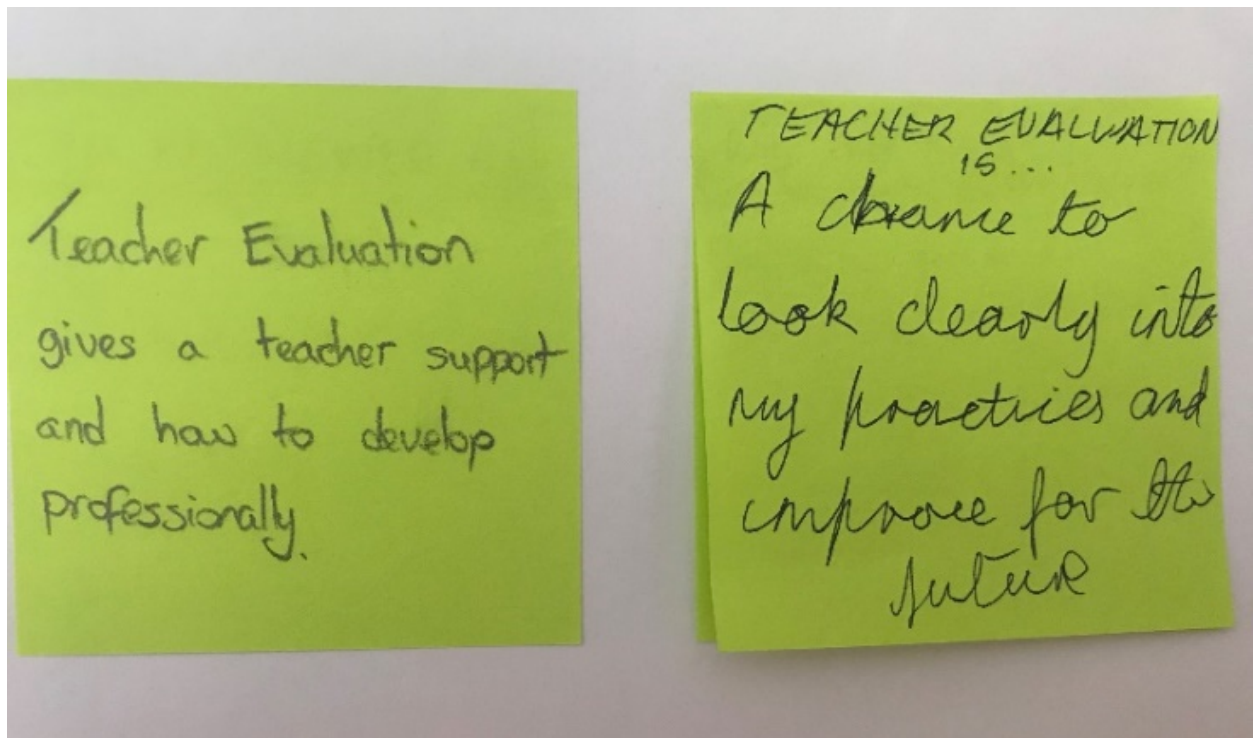 Teacher Evaluation
gives a teacher support
and how to develop
professionally.
TEACHER EVALUATION
IS...
A chance to
look clearly into
my practices and
improve for the
future